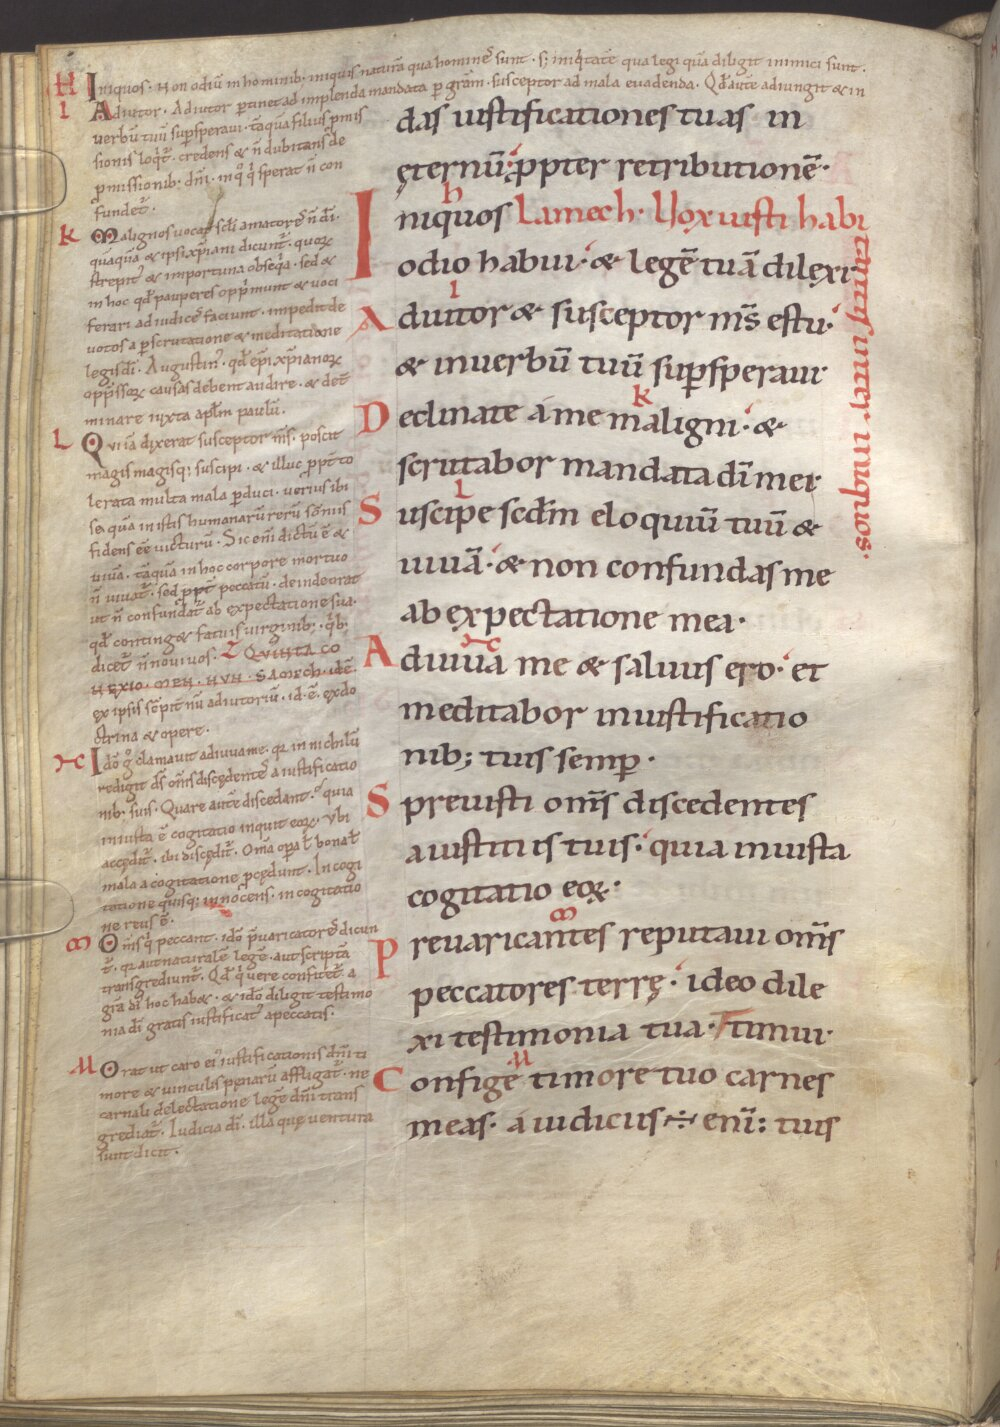 H Iniquos. Non odiū in hominib. iniquis naturā qua hominēs sunt. s; iniq̇tatē qua legi quā diligit inimici sunt.
I Adiutor. Adiutor ꝑtinet ad implenda mandata ꝑ grām. susceptor ad mala euadenda. Qd̄ aūte adiungit & in
uerbū tuū suꝑsperaui. tāqua filius ꝓmis
sionis loq̇t̄. credens & n̄ dubitans de
ꝓmissionib. dn̄i. inq̇ q̇ sperat n̄ con
fundet̄.
K Malignos uocat sc̄li amatorēs n̄ dī.
quāquā & ipsi xp̄iani dicunt̄. quoꝝ
strepit̄ & importuna obseq̇a. sed &
in hoc qd̄ pauperes opp̄munt & uoci
ferari ad iudicēs faciunt. impedit de
uotos a ꝑscrutatione & meditatione
legis dī. Augustin̄. qd̄ ep̄i xp̄ianoꝝ
opp̄ssoꝝ causas debent audire. & det̄
minare iuxta apl̄m paulū.
L Qui iā dixerat susceptor m̄s. poscit
magis magisq; suscipi. & illuc ꝑp̄t to
lerata multa mala ꝑduci. uerius ibi
se quā in istis humanarū rerū somnis
fidens eē uicturū. Sic enī dictū ē &
uiuā. tāquā in hoc corpore mortuo
n̄ uiuat̄. sed ꝓpt̄ peccatū. deinde orat
ut n̄ confundat̄ ab expectatione sua.
qd̄ conting& fatuis uirginib;. q̇b;
dicet̄ n̄ noui uos. QVINTA CO
NEXIO. MEM. NVN. SAMECH. idē.
ex ipsis sēpit̄nū adiutoriū. id. ē. ex do
ctrina & opere.
Idō ḡ clamauit adiuuame. qr̄ in nichilū
redigit dn̄s om̄s discedentēs a iustificatio
nib. suis. Quare aūte discedant. quia
iniusta ē cogitatio inquit eoꝝ. Vbi
accedit̄. ibi discedit̄. Om̄a oꝑa ł bona ł
mala a cogitatione ꝓcedunt. In cogi
tatione quisq; innocens. in cogitatio
ne reus ē.
Om̄s q̇ peccant. idō p̄uaricatorēs dicun
t̄. qr̄ aut naturalē legē. aut scriptā
transgrediunt̄. Qd̄ q̇ uere confitet̄ a
grā dī hoc habet. & idō diligit testimo
nia dī gratis iustificat̄ a peccatis.
M Orat ut caro ei iustificationis dn̄i ti
more & uinculis penarū affligat̄. ne
carnali delectatione legē dn̄i trans
grediat̄. Iudicia dī. illa que uentura
sunt dicit.
das iustificationes tuas in
ęternū: ꝓpter retributionē.
Iniquos Lamech. Uox iusti habi
tantis inter iniquos.
odio habui. & legē tuā dilexi
Adiutor & susceptor m̄s es tu.
& in uerbū tuū suꝑsperaui.
Declinate a me maligni. &
scrutabor mandata dī mei.
Suscipe sc̄dm eloquiū tuū &
uiuā. & non confundas me
ab expectatione mea.
Adiuua me & saluus ero. et
meditabor in iustificatio
nib; tuis semꝑ.
Spreuisti om̄s discedentes
a iustitiis tuis. quia iniusta
cogitatio eoꝝ.
Preuaricantes reputaui om̄s
peccatores terrę. ideo dile
xi testimonia tua. timui.
Confige timore tuo carnes
meas. a iudiciis ÷ enī: tuis